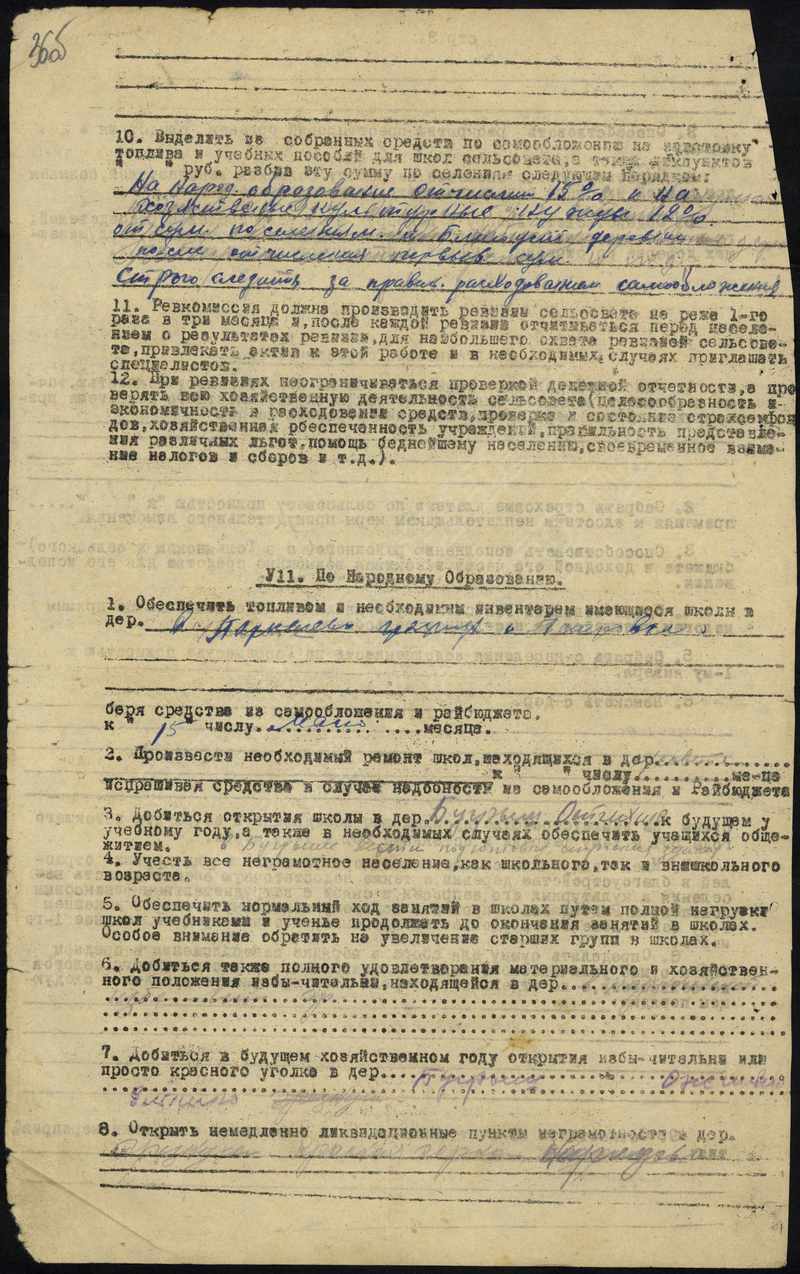 10. Выделить из собранных средств по самообложению на заготовку
топлива и учебных пособий для школ сельсовета, а также
" " руб. разбив эту сумму по селениям следующим порядком:
На народ. образование отчислить 15% и на
хозяйственные культурные нужды 12%.
от сум. по селениям. и деревни
после отчисления первых сум
Строго следить за правил. расходованием самообложения
11. Ревкомиссия должна производить ревизии сельсовета не реже 1-го
раза в три месяца и, после каждой ревизии отчитываться перед населе-
нием о результатах ревизии, для наибольшего охвата ревизией сельсове-
та, привлекать актив к этой работе и в необходимых случаях приглашать
специалистов.
12. При ревизиях неограничиваться проверкой денежной отчетности, а про
верять всю хозяйственную деятельность сельсовета (целесообразность и
экономичность в расходовании средств, проверка и состояние страхсемфон
дов, хозяйственная обеспеченность учреждений, правильность представле-
ния различных льгот, помощь беднейшему населению, своевременное взима-
ние налогов и сборов и т.д.).
У11. По Народному Образованию.
1. Обеспечить топливом и необходимым инвентарем имеющиеся школы в
дер.
беря средства из самообложения и райбюджета.
к " 15 " числу. мая ....месяца.
2. Произвести необходимый ремонт школ, находящихся в дер..............
к " " числу..........ме-ца
испрашивая средства в случае надобности из самообложения и Райбюджета
3. Добиться открытия школы в дер. к будущем у
учебному году, а также в необходимых случаях обеспечить учащихся обще-
житием.
4. Учесть все неграмотное население, как школьного, так и внешкольного
возраста.
5. Обеспечить нормальный ход занятий в школах путем полной нагрузки
школ учебниками и ученье продолжать до окончания занятий в школах.
Особое внимание обратить на увеличение старших групп в школах.
6. Добиться также полного удовлетворения материального и хозяйствен-
ного положения избы-читальни, находящейся в дер......................
7. Добиться в будущем хозяйственном году открытия избы-читальни или
просто красного уголка в дер.
8. Открыть немедленно ликвидационные пункты неграмотности в дер.